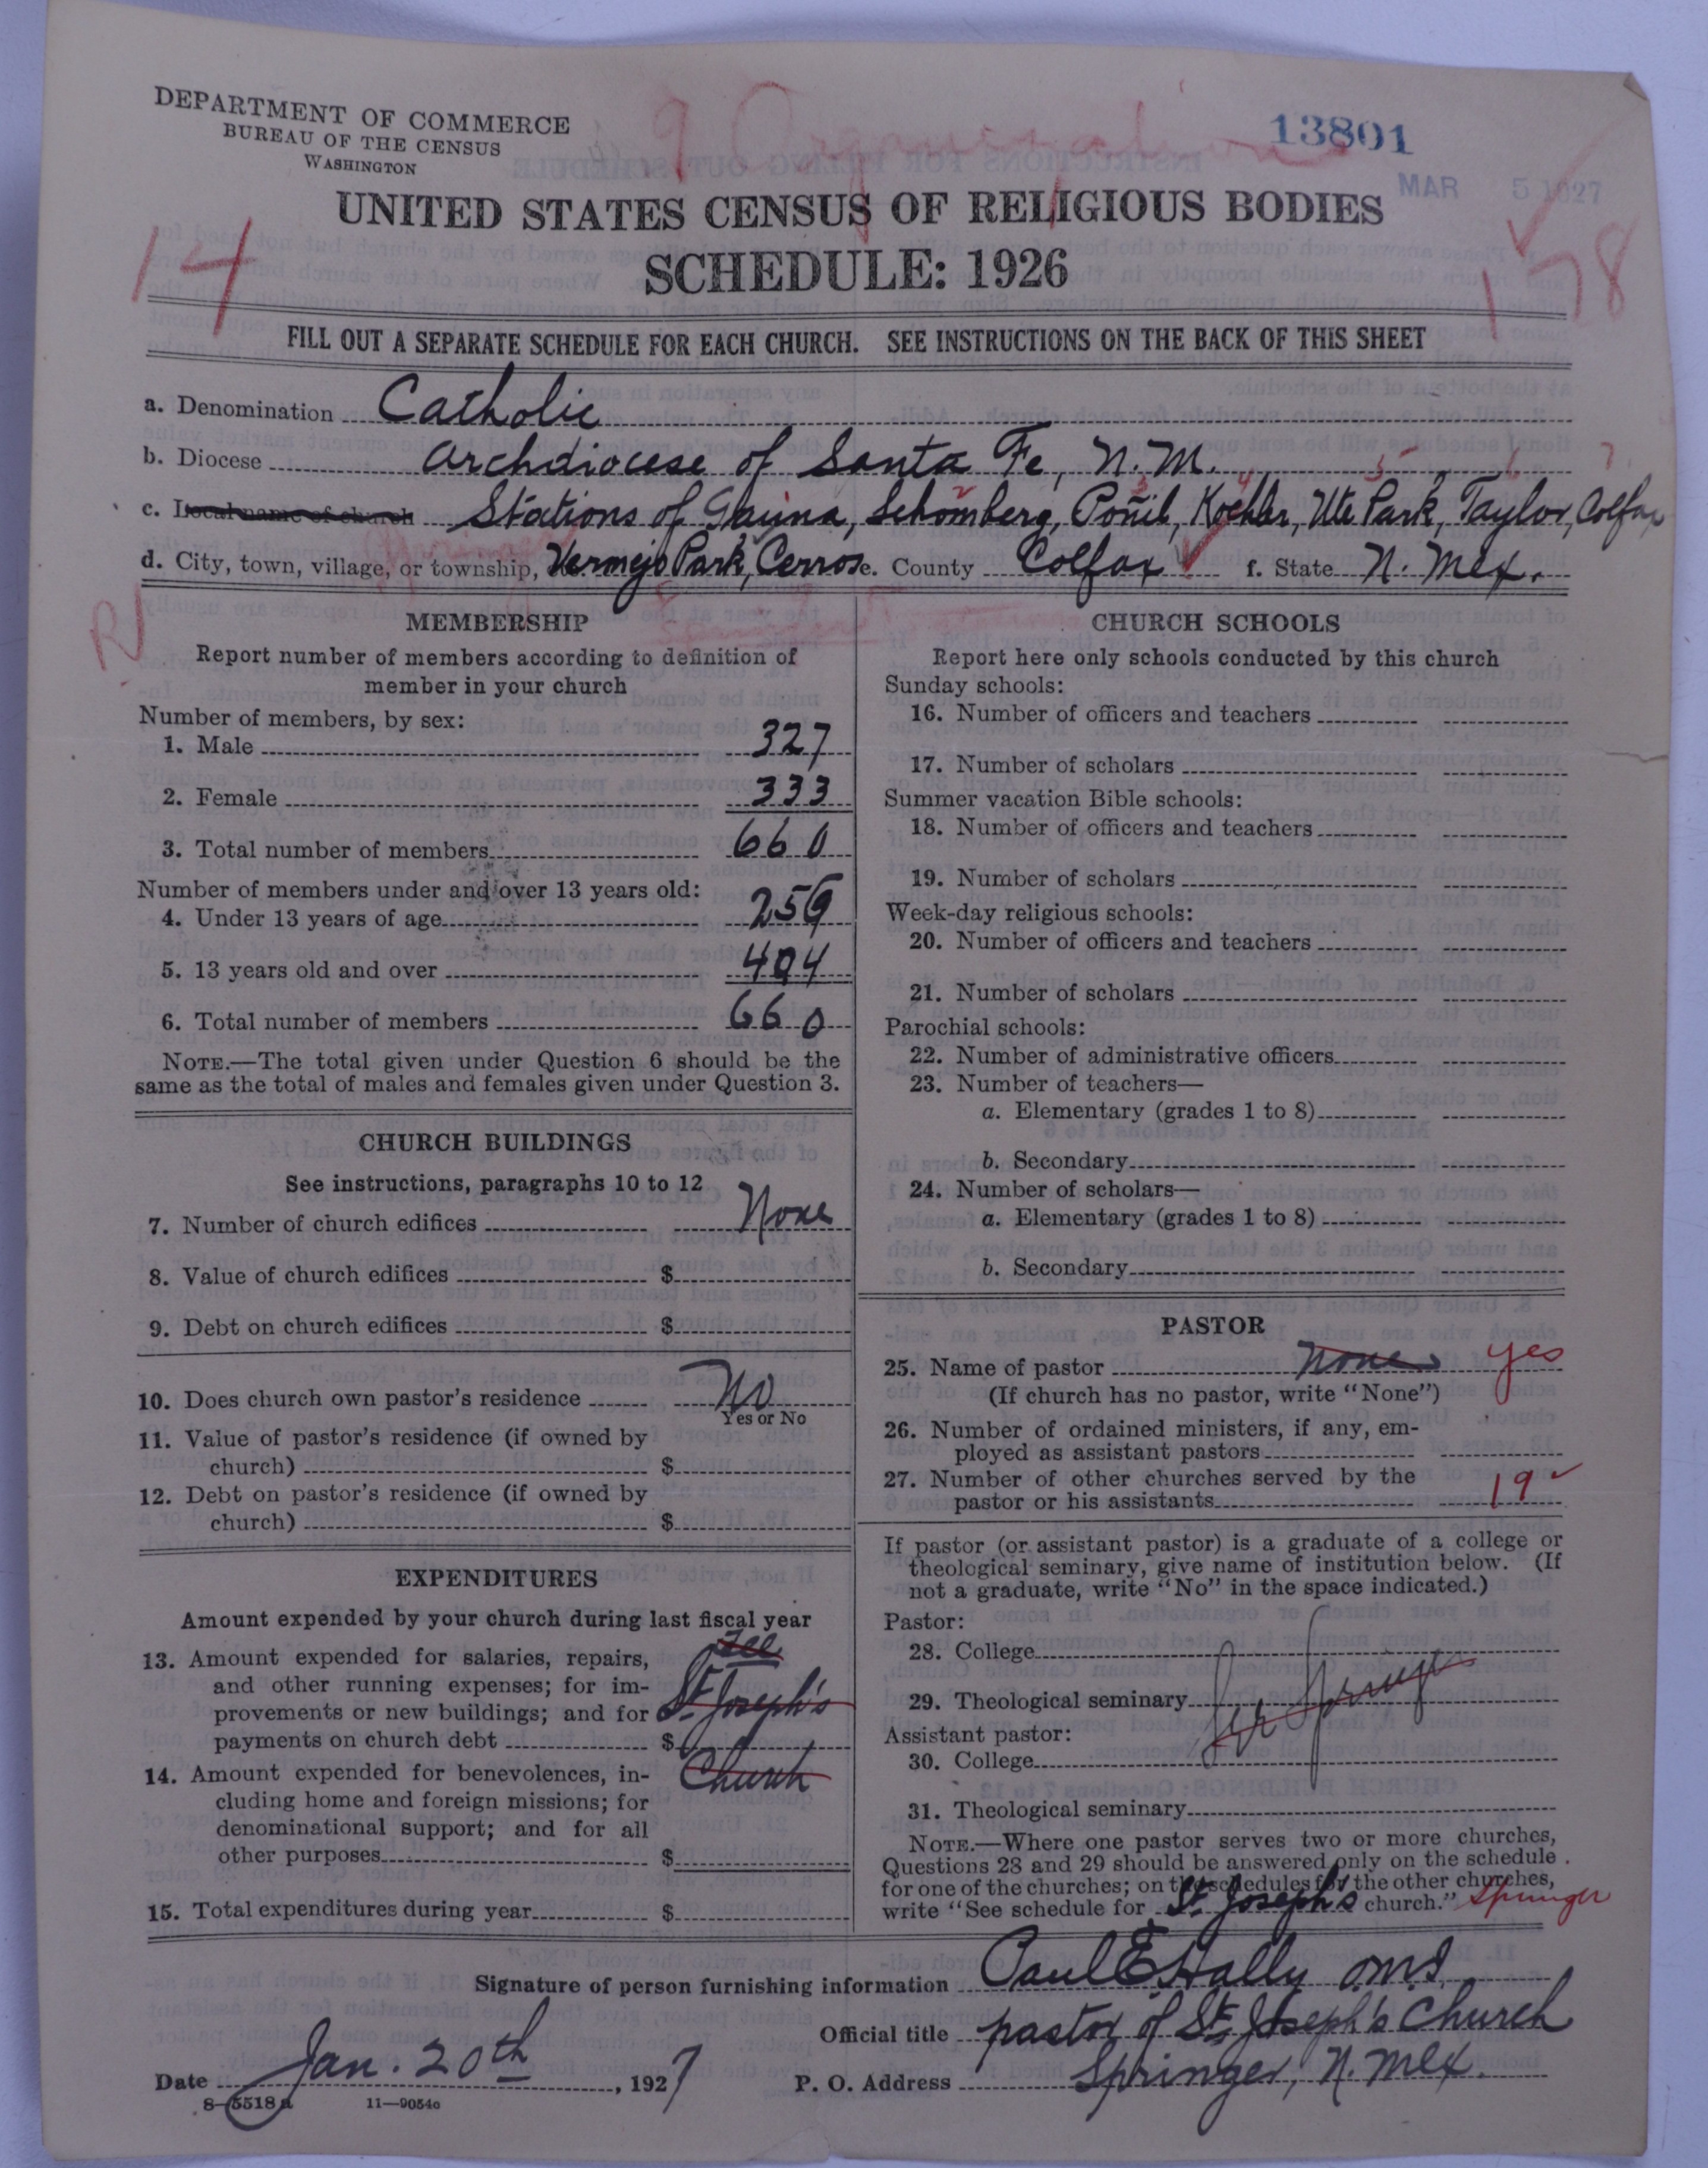 DEPARTMENT OF COMMERCE
BUREAU OF THE CENSUS
WASHINGTON
9 Organizations
13801
MAR 5 1927
UNITED STATES CENSUS OF RELIGIOUS BODIES
SCHEDULE: 1926
14
178
FILL OUT A SEPARATE SCHEDULE FOR EACH CHURCH. SEE INSTRUCTIONS ON THE BACK OF THIS SHEET
a. Denomination Catholic
b. Diocese Archdiocese of Santa Fe, N.M.
c. Local name of church Stations of Gauna, Schomberg, Poñil, Koehler, Ute Park, Taylor, Colfax
d. City, town, village, or township, Vermejo Park, Cerroso e. County Colfax f. State N. Mex.
MEMBERSHIP
Report number of members according to definition of
member in your church
Number of members, by sex:
1. Male 327
2. Female 333
3. Total number of members 660
Number of members under and over 13 years old:
4. Under 13 years of age 256
5. 13 years old and over 404
6. Total number of members 660
NOTE.—The total given under Question 6 should be the
same as the total of males and females given under Question 3.
CHURCH BUILDINGS
See instructions, paragraphs 10 to 12
7. Number of church edifices None
8. Value of church edifices $
9. Debt on church edifices $
10. Does church own pastor's residence No
Yes or No
11. Value of pastor's residence (if owned by
church) $
12. Debt on pastor's residence (if owned by
church) $
EXPENDITURES
Amount expended by your church during last fiscal year
13. Amount expended for salaries, repairs, See
and other running expenses; for im-
provements or new buildings; and for St. Joseph's
payments on church debt $
14. Amount expended for benevolences, in- Church
cluding home and foreign missions; for
denominational support; and for all
other purposes $
15. Total expenditures during year $
CHURCH SCHOOLS
Report here only schools conducted by this church
Sunday schools:
16. Number of officers and teachers
17. Number of scholars
Summer vacation Bible schools:
18. Number of officers and teachers
19. Number of scholars
Week-day religious schools:
20. Number of officers and teachers
21. Number of scholars
Parochial schools:
22. Number of administrative officers
23. Number of teachers—
a. Elementary (grades 1 to 8)
b. Secondary
24. Number of scholars—
a. Elementary (grades 1 to 8)
b. Secondary
PASTOR
25. Name of pastor None yes
(If church has no pastor, write "None")
26. Number of ordained ministers, if any, em-
ployed as assistant pastors
27. Number of other churches served by the
pastor or his assistants 19
If pastor (or assistant pastor) is a graduate of a college or
theological seminary, give name of institution below. (If
not a graduate, write "No" in the space indicated.)
Pastor:
28. College
29. Theological seminary
Assistant pastor:
30. College
31. Theological seminary
NOTE.—Where one pastor serves two or more churches,
Questions 28 and 29 should be answered only on the schedule
for one of the churches; on the schedules for the other churches,
write "See schedule for St. Joseph's church." Springer
Signature of person furnishing information Paul E Hally
Official title pastor of St. Joseph's Church
Date Jan. 20th, 1927 P. O. Address Springer, N. Mex.
8—5518a 11—9054c